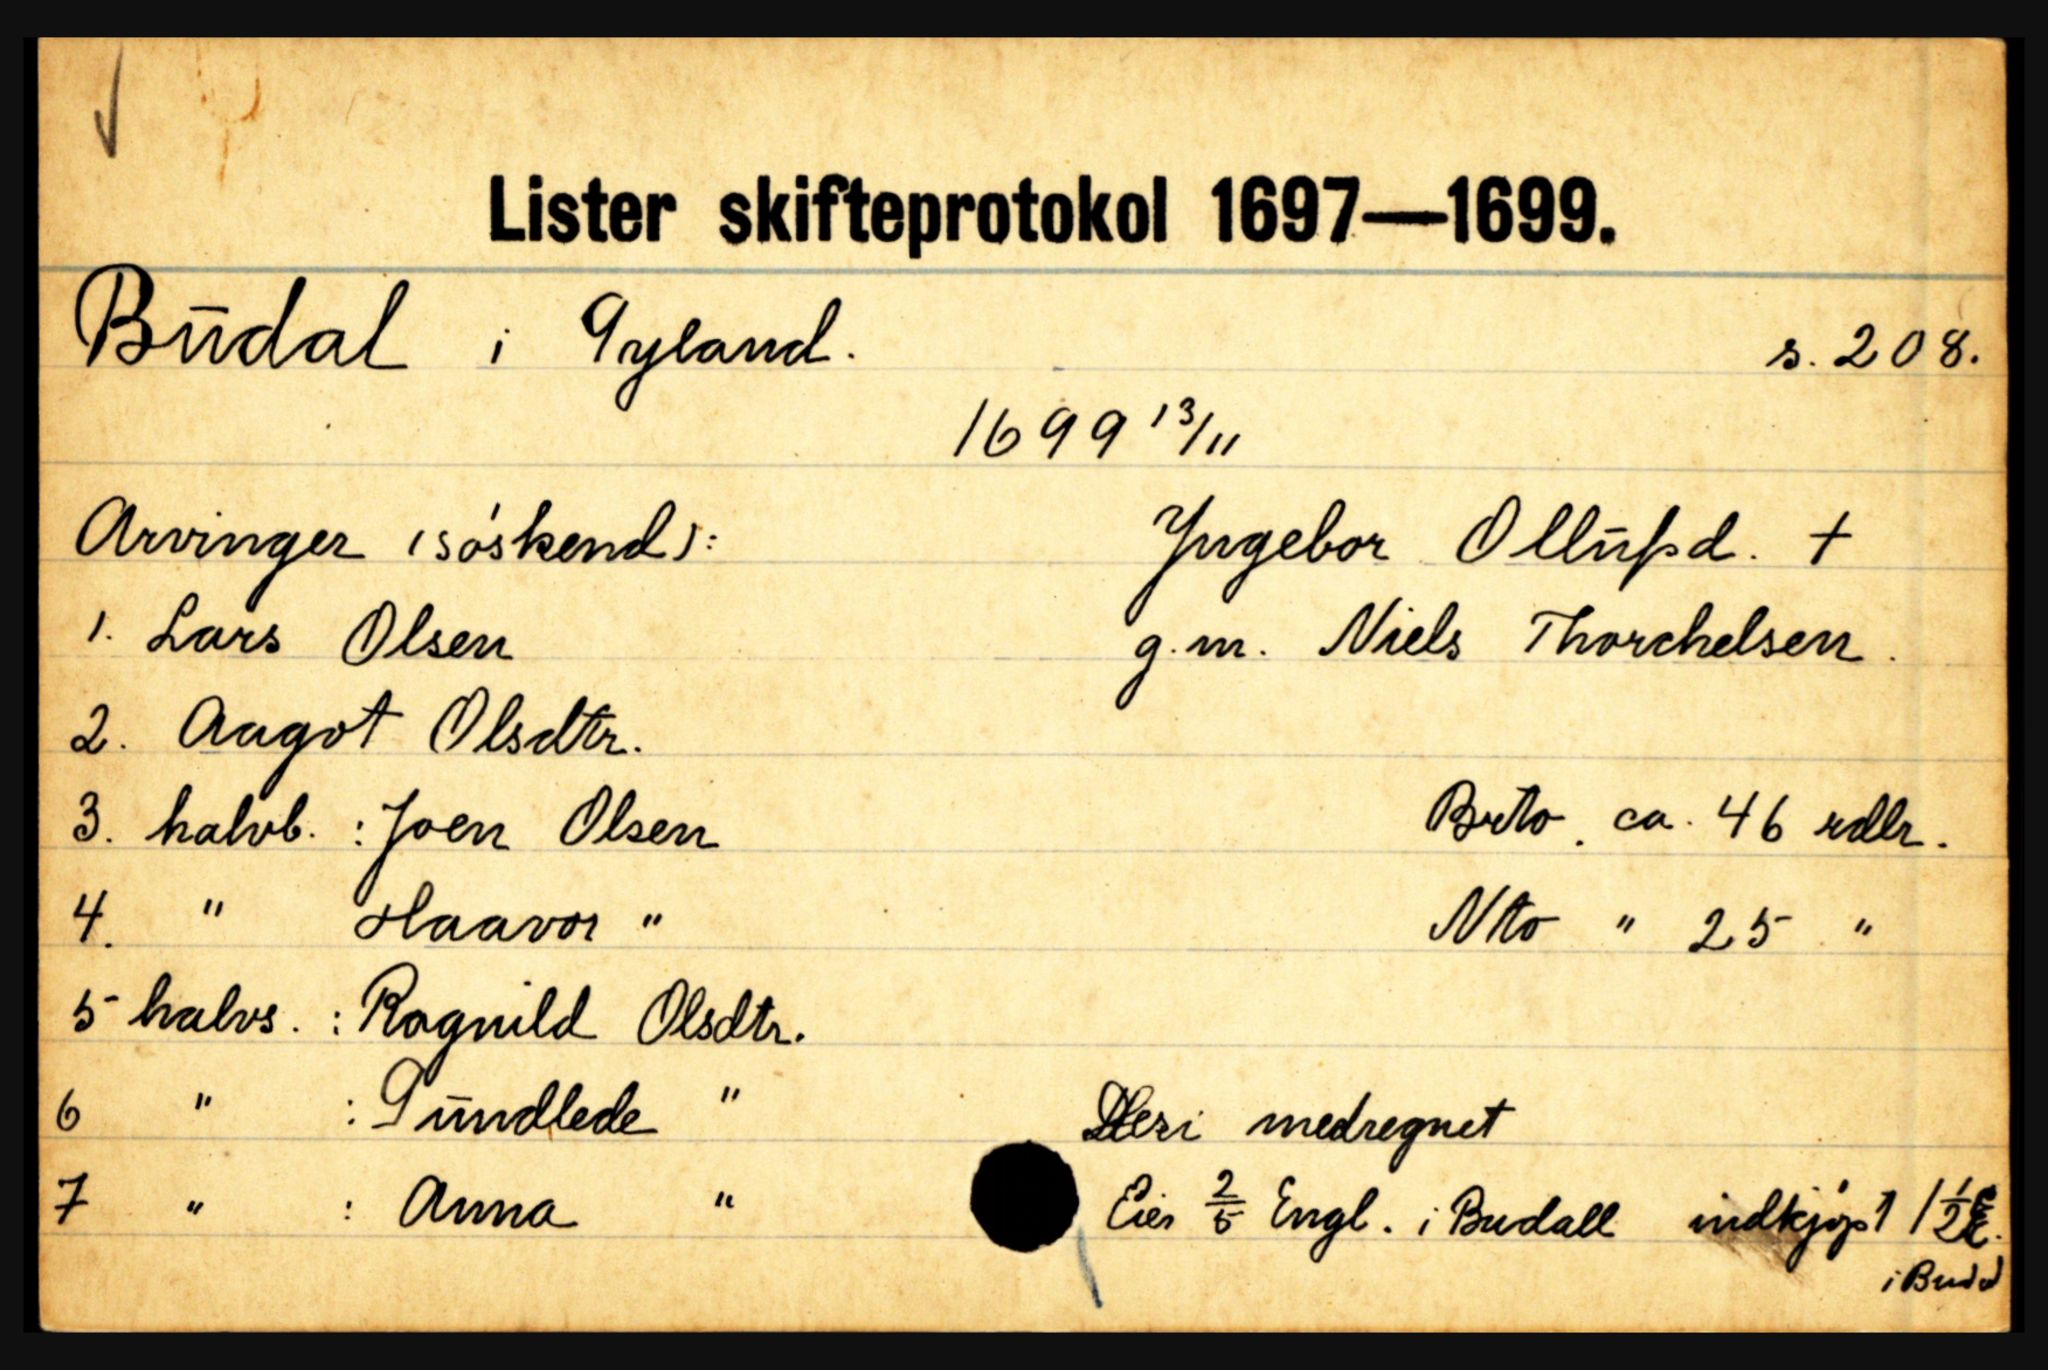 Lister skifteprotokol 1697—1699.
Budal i Gyland. s. 208.
1699 13/11
Arvinger (söskend): Yngebor Ollufsd. +
1. Lars Olsen g.m. Niels Thorchelsen.
2. Aagot Olsdtr.
3. halvb. : Joen Olsen Brto. ca. 46 rdlr.
4. " Haavor " Nto " 25 "
5 halvs. : Ragnild Olsdtr.
6 " : Gundlede " Heri medregnet
7 " : Anna " Eier 2/5 Engl. i Budall indkjöpt 1 1/2 E.
i Budal